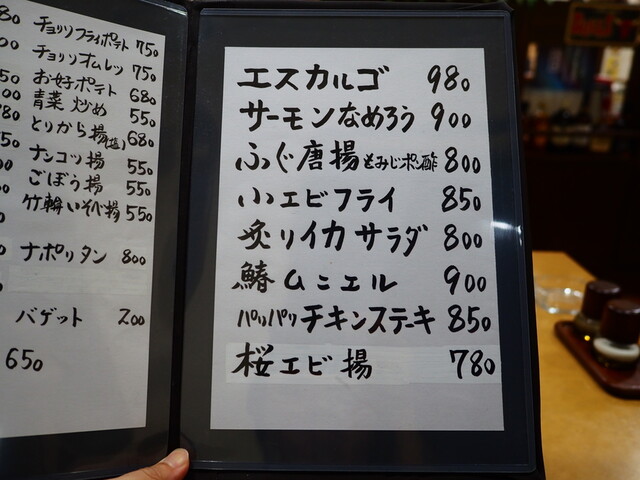 チョリソフライポテト 750
チョリソオムレツ 750
お好ポテト 680
青菜炒め 550
とりから揚(塩) 680
ナンコツ揚 550
ごぼう揚 550
竹輪いそべ揚 550
ナポリタン 800
バゲット 200
650
エスカルゴ 980
サーモンなめろう 900
ふぐ唐揚もみじポン酢 800
小エビフライ 850
炙りイカサラダ 800
鰆ムニエル 900
パリパリチキンステーキ 850
桜エビ揚 780